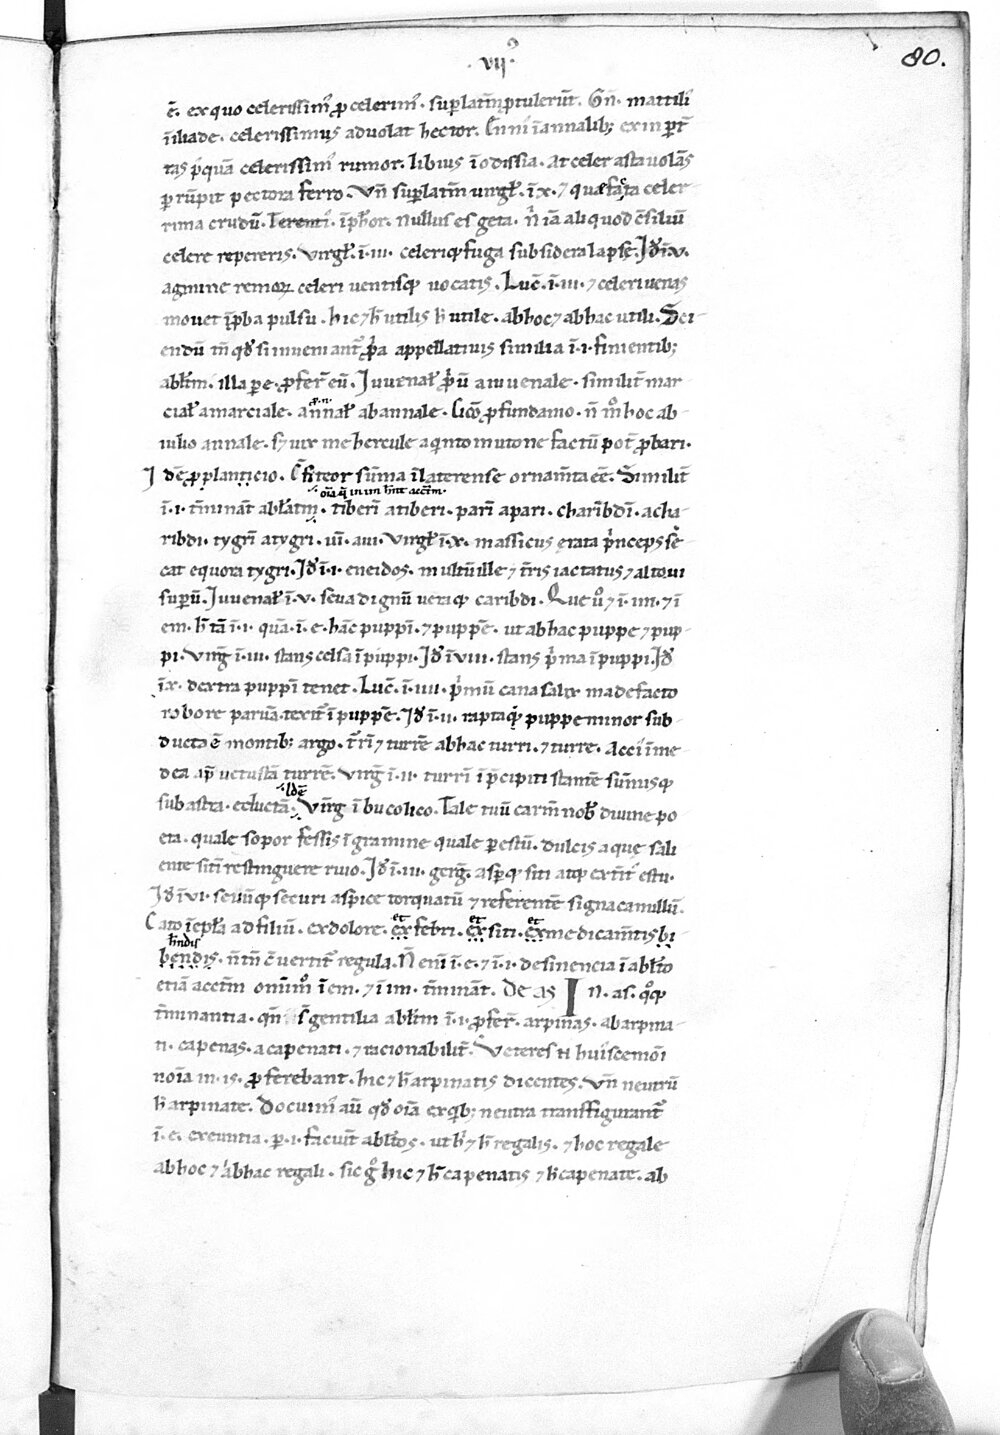 · vii ·
80.
ē. ex quo celerissim᾽ ꝓ celerim᾽. suꝑlatiū ꝓtulerūt. Gn̄. mattiꝰ
ī iliade. celerissimus aduolat hector. Enniꝰ ī annalib; ex in ꝑt̄
tas p̄quā celerissimꝰ rumor. libius ī odissia. At celer asta uolās
ꝑ rūpit pectora ferro. Vn̄ suꝑlatiū uirgl̄. ī.x. ⁊ quā fama celer-
rima crudū. Terentiꝰ. ī phor. Nullus es geta. n̄ iā aliquod ꝯsiliū
celere repereris. Virgl̄. ī. iii. celeriq fuga sub sidera lapse. Id̄ ī.v.
agmine remoꝝ celeri uentisq uocatis. Luc̄. ī. iii. ⁊ celeri uenas
mouet īproba pulsu. hic ⁊ h̄ utilis h̄ utile. ab hoc ⁊ ab hac utili. Sci-
endū tn̄ qd̄ si inueniant᾽ ꝓpria appellatiuis similia ī. i. finientib;
abl̄tiuū. illa ꝑ e. ꝓferēt᾽ eū. Iuuenal̄ ꝓpriū a iuuenale. similit̄ mar-
cial̄ a marciale. annal̄ ab annale. Cic̄o ꝓ fundanio. n̄ m̊ hoc ab
iulio annale. s; uix me hercule a quinto mutone factū pot̄ ꝓbari.
Idē ꝓ plancio. Cfiteor sūma ī laterense ornam̄ta eē. Similit̄
ī. i. t̄minant abl̄atiuū. tiberī a tiberi. parī a pari. charibdī. a cha-
oīa q̄ in im hn̄t acc̄tm.
ribdi. tygrī a tygri. uī. a ui. Virgl̄ ī.x. massicus ęrata p̄nceps se-
cat equora tygri. Id̄ ī. i. eneidos. multū ille ⁊ t̄ris iactatus ⁊ alto ui
superū. Iuuenal̄ ī. v. seua dignū ueraq caribdi. Que ů ⁊ ī. im. ⁊ ī
em. h̄ tā ī. i. quā. ī. e. hāc puppī. ⁊ puppē. ut ab hac puppe ⁊ pup-
pi. Virḡ ī. iii. stans celsa ī puppi. Id̄ ī viii. stans p̄ma ī puppi. Id̄
ī x. dextra puppī tenet. Luc̄. ī. iiii. p̄mū cana salix madefacto
robore paruā. texit᾽ ī puppē. Id̄ ī. ii. raptaq puppe minor sub-
ducta ē montib; argo. t̄rī ⁊ turrē ab hac turri. ⁊ turre. Acciꝰ ī me-
dea ap̄ uetustā turrē. Virḡ ī. ii. turrī ī p̄cipiti stantē sūmisq
idē
sub astra. eductā. Virḡ ī bucolico. Tale tuū carm̄ nob̄ diuine po-
eta. quale sopor fessis ī gramine quale ꝑ estū. dulcis aque sali-
ente sitī restinguere riuo. Id̄ ī. iii. georḡ. aspq siti atq ext̄it estu.
Id̄ ī vi. seuūq securi aspice torquatū ⁊ referentē signa camillū.
Cato ī epl̄a ad filiū. ex dolore. ex febri. ex siti. ex medicam̄tis bi-
et et et
h̄ndis
bendis. n̄ tn̄ ꝯuertit᾽ regula. N enī ī. e. ⁊ ī. i. desinencia ī abl̄to
etiā acc̄tm omīmo̊ ī em. ⁊ ī im. t̄minant. De as IN. as. qqꝫ
t̄minantia. qn̄ s̄ gentilia abl̄tm ī. i. ꝓfer̄. arpinas. ab arpina-
ti. capenas. a capenati. ⁊ racionabilit̄. Veteres n̄ huꝰcemōi
noīa in. is. ꝓferebant. hic ⁊ h̄ arpinatis dicentes. Vn̄ neutrū
h̄ arpinate. Docuimꝰ aū qd̄ oīa ex quib; neutra transfigurant᾽
ī. e. exeuntia. ꝑ. i. faciūt abl̄tos. ut h̄ ⁊ h̄ regalis. ⁊ hoc regale
ab hoc ⁊ ab hac regali. sic g̊ hic ⁊ h̄ capenatis ⁊ h̄ capenate. ab